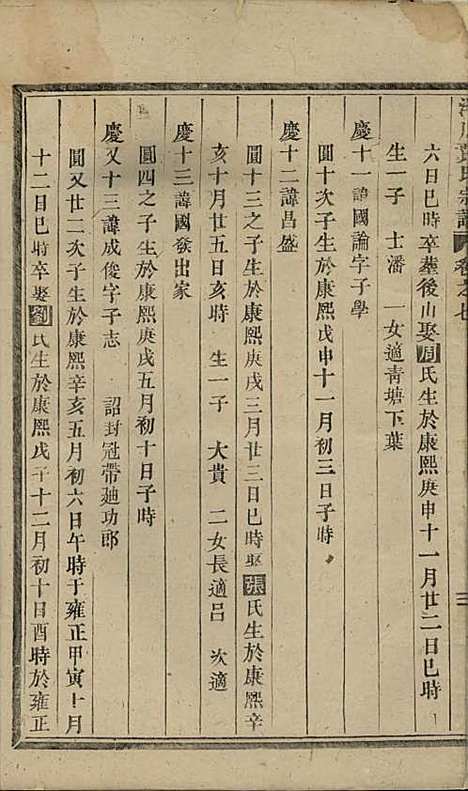 氏宗譜 卷之七
六日巳時卒塟後山娶周氏生於康熙庚申十一月廿二日巳時
生一子 士潘 一女適靑塘下葉
慶十一諱國論字子學
圓十次子生於康熙戊申十一月初三日子時
慶十二諱昌盛
圓十三之子生於康熙庚戌三月廿三日巳時娶張氏生於康熙辛
亥十月廿五日亥時 生一子 大貴 二女長適呂 次適
慶十三諱國發出家
圓四之子生於康熙庚戌五月初十日子時
慶又十三諱成俊字子志 詔封冠帶廸功郎
圓又廿二次子生於康熙辛亥五月初六日午時于雍正甲寅十月
十二日巳時卒娶劉氏生於康熙戊子十二月初十日酉時於雍正